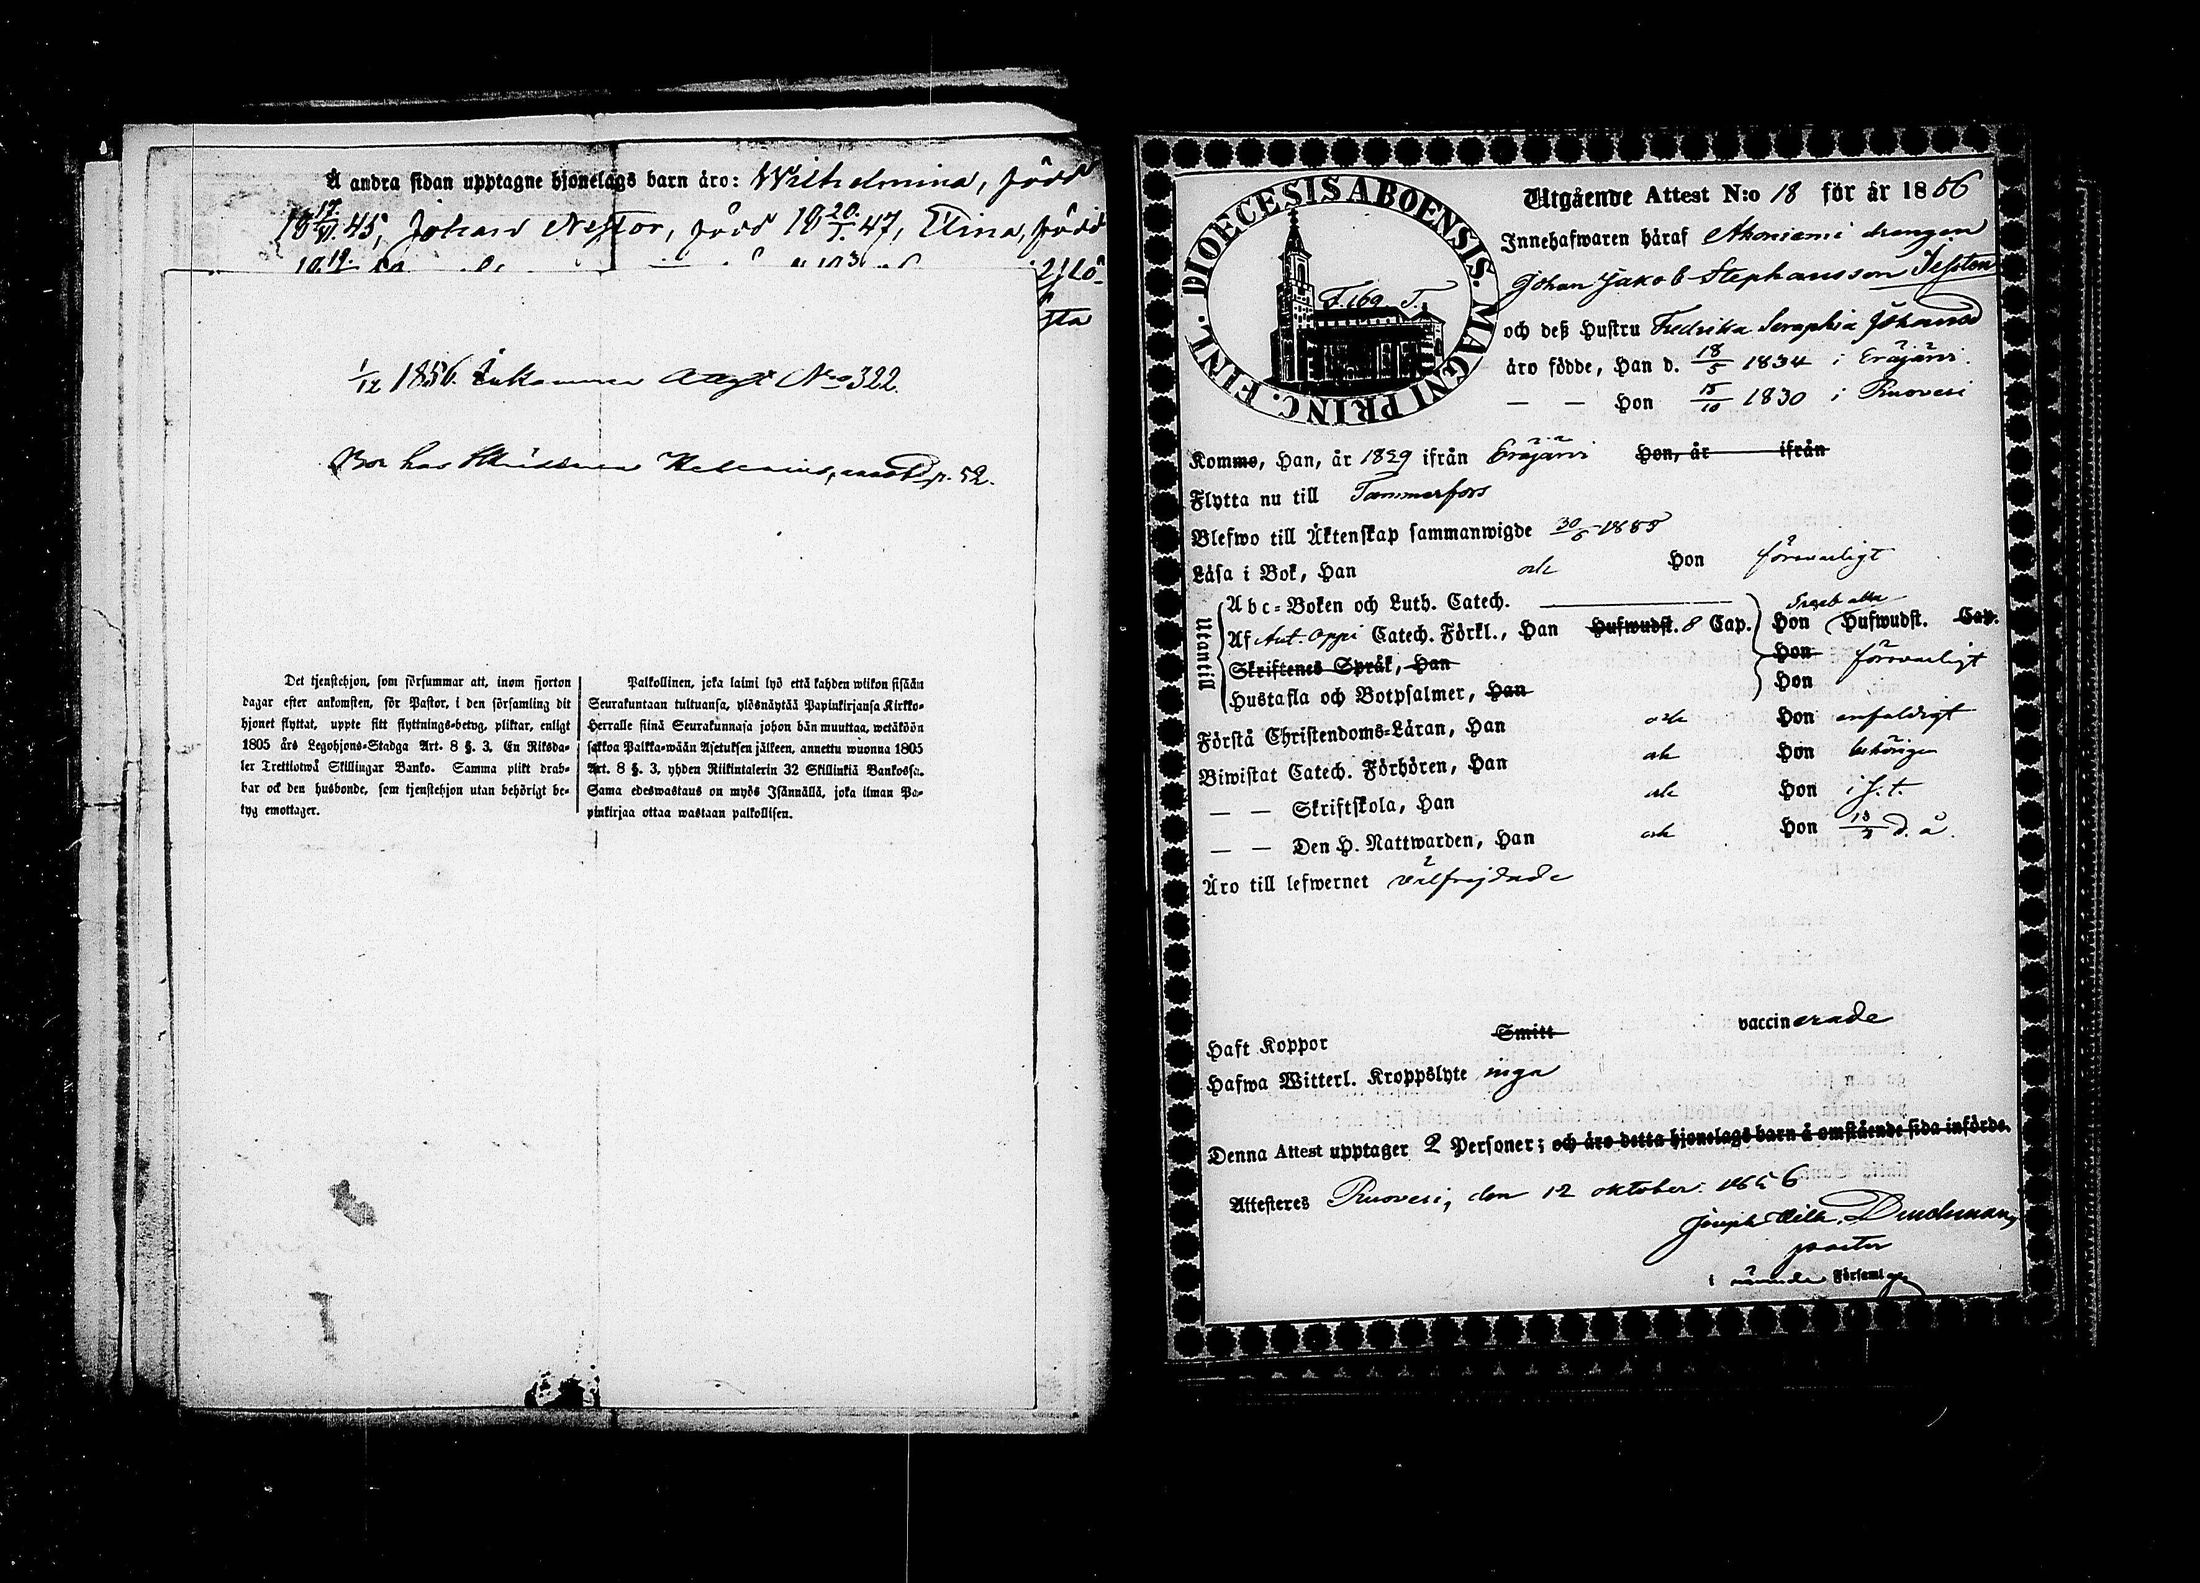 Å andra sidan upptagne hjonelags barn äro: Wilhelmina, född
18 17/VI. 45, Johan Nestor, född 18 20/I. 47, Elina, född
sta
1/12 1856. Inkommen Attest No 322.
Bor hos Helenius, p. 52.
Det tjenstehjon, som försummar att, inom fjorton
dagar efter ankomsten, för Pastor, i den församling dit
hjonet flyttat, uppte sitt flyttnings-betyg, pliktar, enligt
1805 års Legohjons-Stadga Art. 8 §. 3, En Riksda-
ler Trettiotwå Skillingar Banko. Samma plikt drab-
bar ock den husbonde, som tjenstehjon utan behörigt be-
tyg emottager.
Palkollinen, joka laimi lyö että kahden wiikon sisään
Seurakuntaan tultuansa, ylösnäytää Papinkirjansa Kirkko-
Herralle siinä Seurakunnasa johon hän muuttaa, wetäköön
sakkoa Palkka-wään Asetuksen jälkeen, annettu wuonna 1805
Art. 8 §. 3, yhden Riikintalerin 32 Skillinkiä Bankossa.
Sama edeswastaus on myös Isännällä, joka ilman Pa-
pinkirjaa ottaa wastaan palkollisen.
DIOECESIS ABOENSIS. MAGNI PRINC. FINL.
F. 169. T.
Utgående Attest N:o 18 för år 1856
Innehafwaren häraf Akoniemi drengen
Johan Jakob Stephansson
och deß Hustru Fredrika Seraphia Johansd
äro födde, Han d. 18/5 1834 i Eräjärvi.
— — Hon 15/10 1830 i Ruovesi
Kommo, Han, år 1829 ifrån Eräjärvi Hon, år ifrån
Flytta nu till Tammerfors
Blefwo till Äktenskap sammanwigde 30/6 1855
Läsa i Bok, Han och Hon försvarligt
Utantill
Abc-Boken och Luth. Catech.
Af Aut. Oppi Catech. Förkl., Han Hufwudst. 8 Cap. Hon Hufwudst. Cap.
Skriftenes Språk, Han Hon försvarligt
Hustafla och Botpsalmer, Han Hon
Förstå Christendoms-Läran, Han och Hon enfaldigt
Biwistat Catech. Förhören, Han och Hon behörigen
— — Skriftskola, Han och Hon i s. t.
— — Den H. Nattwarden, Han och Hon 13/7 d. å.
Äro till lefwernet välfrejdade
Haft Koppor Smitt vaccinerade
Hafwa Witterl. Kroppslyte inga
Denna Attest upptager 2 Personer; och äro detta hjonelags barn å omstående sida införde.
Attesteres Ruovesi, den 12 oktober 1856
Joseph Wilh. Durchman,
pastor
i nämnde Församl